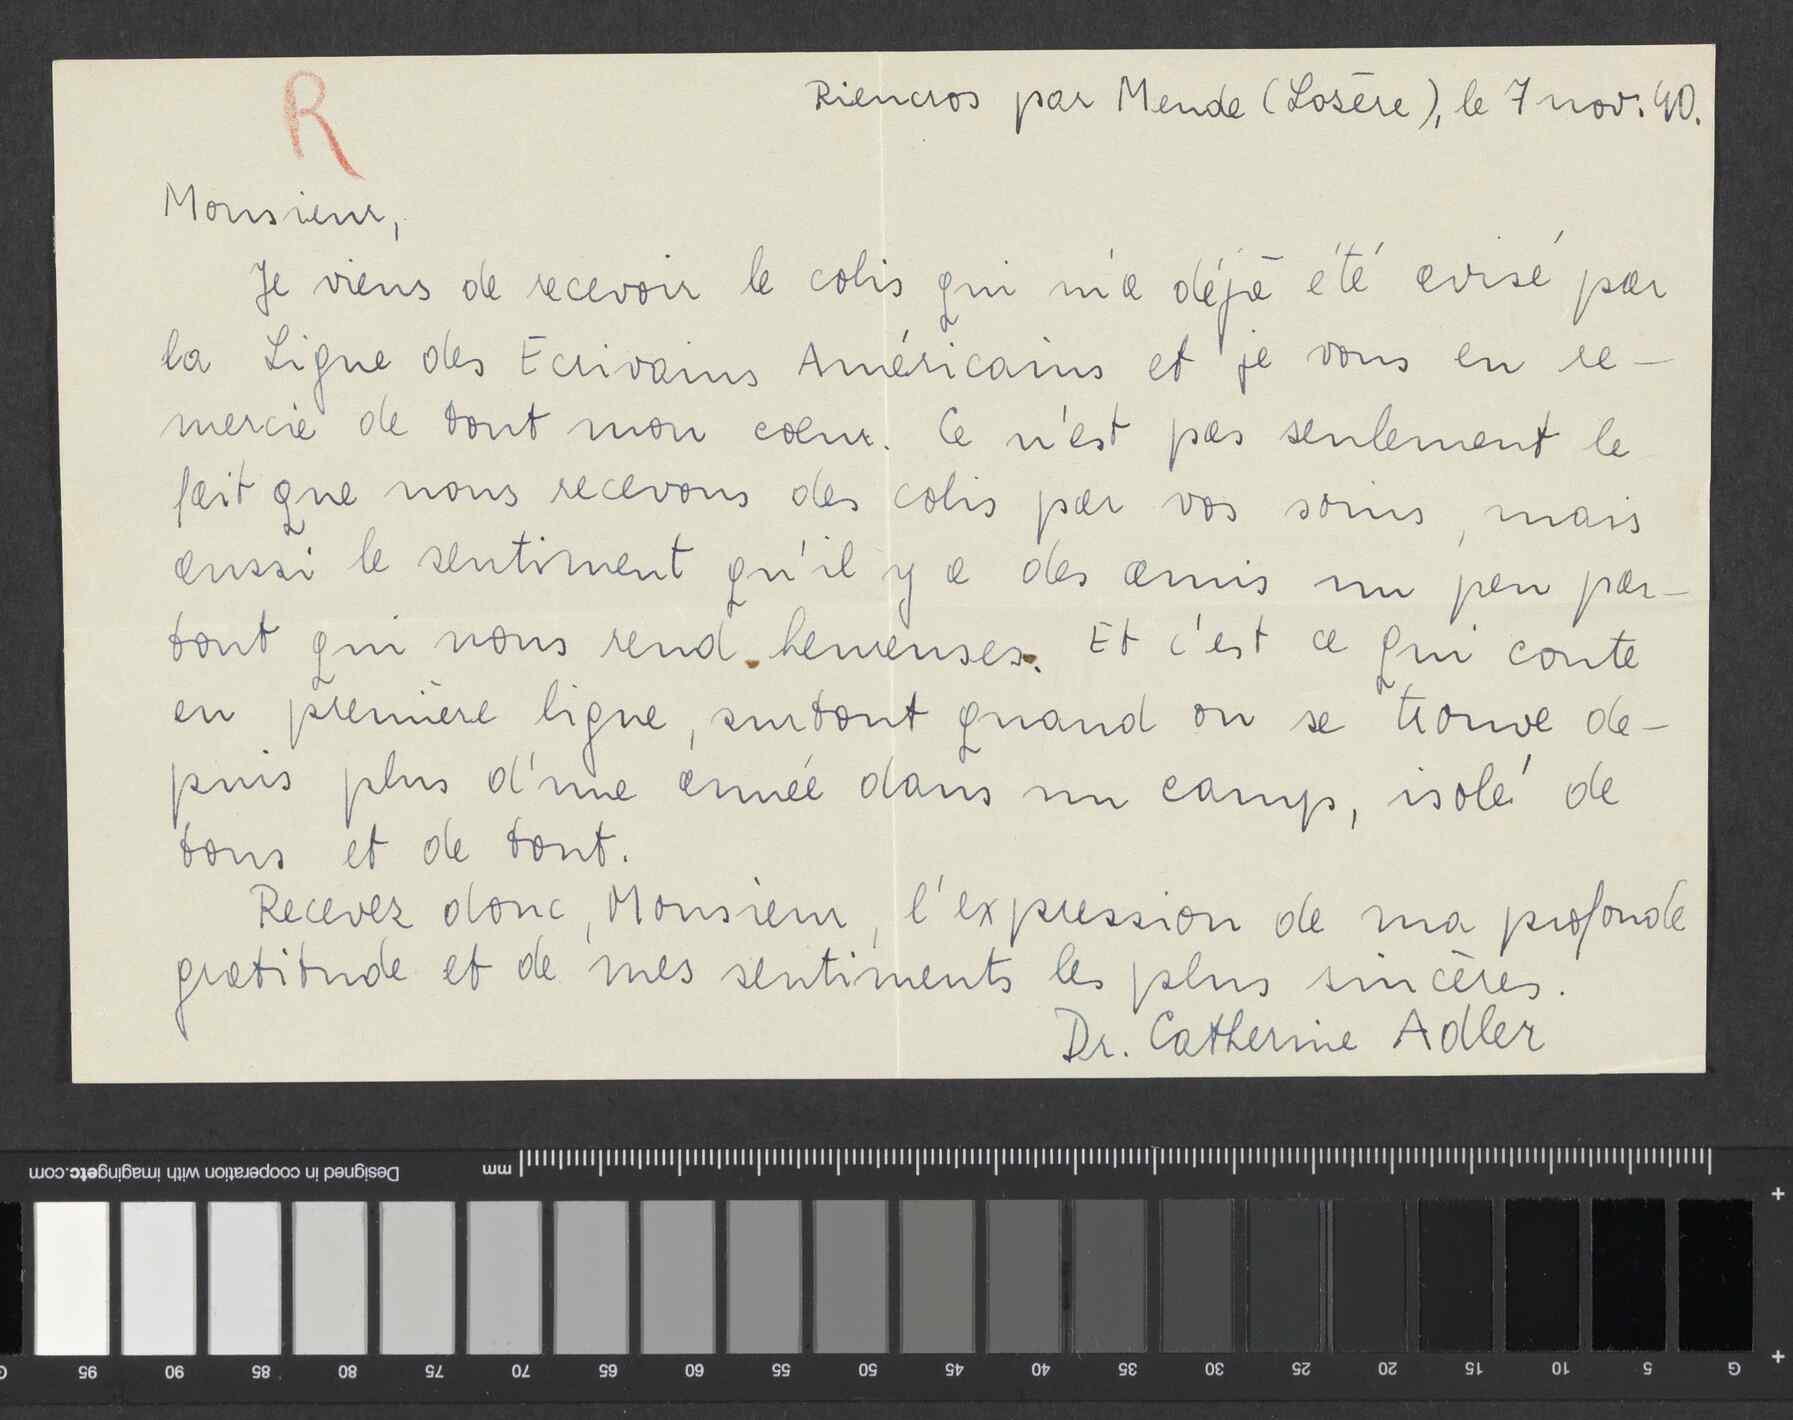 R
Riencros par Mende (Losère), le 7 nov. 40.
Monsieur,
Je viens de recevoir le colis qui m'a déjà été avisé par
la Ligue des Ecrivains Américains et je vous en re-
mercie de tout mon cœur. Ce n'est pas seulement le
fait que nous recevons des colis par vos soins, mais
aussi le sentiment qu'il y a des amis un peu par-
tout qui nous rend heureuses. Et c'est ce qui conte
en première ligne, surtout quand on se trouve de-
puis plus d'une année dans un camp, isolé de
tous et de tout.
Recevez donc, Monsieur, l'expression de ma profonde
gratitude et de mes sentiments les plus sincères.
Dr. Catherine Adler
mm
Designed in cooperation with imagingetc.com
G 5 10 15 20 25 30 35 40 45 50 55 60 65 70 75 80 85 90 95